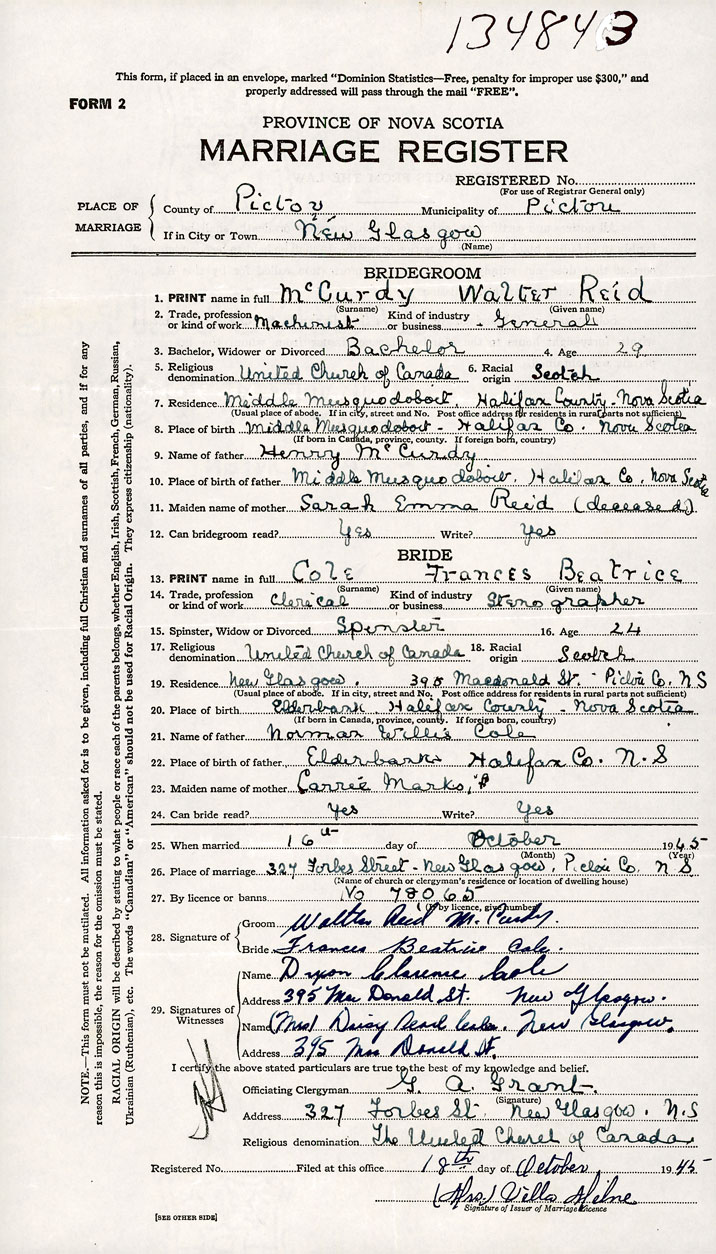 134843
This form, if placed in an envelope, marked “Dominion Statistics—Free, penalty for improper use $300,” and
properly addressed will pass through the mail “FREE”.
FORM 2
PROVINCE OF NOVA SCOTIA
MARRIAGE REGISTER
REGISTERED No.
(For use of Registrar General only)
PLACE OF MARRIAGE
County of Pictou Municipality of Pictou
If in City or Town New Glasgow
(Name)
BRIDEGROOM
1. PRINT name in full McCurdy Walter Reid
(Surname) (Given name)
2. Trade, profession or kind of work Machinist Kind of industry or business - General
3. Bachelor, Widower or Divorced Bachelor 4. Age 29
5. Religious denomination United Church of Canada 6. Racial origin Scotch
7. Residence Middle Musquodoboit, Halifax County - Nova Scotia
(Usual place of abode. If in city, street and No. Post office address for residents in rural parts not sufficient)
8. Place of birth Middle Musquodoboit - Halifax Co. Nova Scotia
(If born in Canada, province, county. If foreign born, country)
9. Name of father Henry McCurdy
10. Place of birth of father Middle Musquodoboit. Halifax Co, Nova Scotia
11. Maiden name of mother Sarah Emma Reid (deceased)
12. Can bridegroom read? Yes Write? Yes
BRIDE
13. PRINT name in full Cole Frances Beatrice
(Surname) (Given name)
14. Trade, profession or kind of work Clerical Kind of industry or business Stenographer
15. Spinster, Widow or Divorced Spinster 16. Age 24
17. Religious denomination United Church of Canada 18. Racial origin Scotch
19. Residence New Glasgow. Macdonald St. - Pictou Co. N S
(Usual place of abode. If in city, street and No. Post office address for residents in rural parts not sufficient)
20. Place of birth Elderbank. Halifax County - Nova Scotia
(If born in Canada, province, county. If foreign born, country)
21. Name of father Norman Willis Cole
22. Place of birth of father Elderbank Halifax Co. N. S
23. Maiden name of mother Carrie Marks
24. Can bride read? Yes Write? Yes
25. When married 16th day of October 1945
(Month) (Year)
26. Place of marriage 327 Forbes Street - New Glasgow, Pictou Co. N S
(Name of church or clergyman's residence or location of dwelling house)
27. By licence or banns No 78065
(If by licence, give number)
28. Signature of
Groom Walter Reid McCurdy
Bride Frances Beatrice Cole.
29. Signatures of Witnesses
Name Dyson Clarence Cole
Address 395 MacDonald St. New Glasgow.
Name (Mrs) Daisy Pearl Cole. New Glasgow.
Address 395 MacDonald St.
I certify the above stated particulars are true to the best of my knowledge and belief.
Officiating Clergyman G. A. Grant.
(Signature)
Address 327 Forbes St. New Glasgow. N.S
Religious denomination The United Church of Canada
Registered No. Filed at this office 18th day of October, 1945
(Mrs.) Villa Milne
Signature of Issuer of Marriage Licence
[SEE OTHER SIDE]
NOTE.—This form must not be mutilated. All information asked for is to be given, including full Christian and surnames of all parties, and if for any
reason this is impossible, the reason for the omission must be stated.
RACIAL ORIGIN will be described by stating to what people or race each of the parents belongs, whether English, Irish, Scottish, French, German, Russian,
Ukrainian (Ruthenian), etc. The words “Canadian” or “American” should not be used for Racial Origin. They express citizenship (nationality).